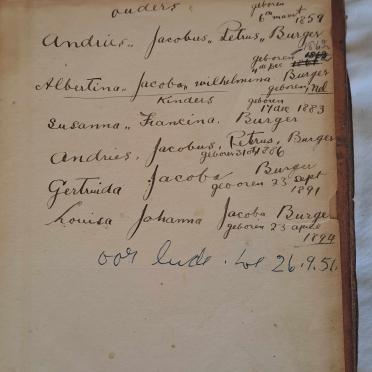 ouders
geboren
6de maart 1859
Andries,, Jacobus,, Petrus,, Burger
geboren 1862
Albertina,, Jacoba,, wilhelmina Burger
geboren, Nel
Kinders
geboren
17 dec 1883
Susanna,, Francina. Burger
Andries, Jacobus, Petrus, Burger
geboren 31 1886
Gertruida Jacoba Burger
geboren 23 sept
1891
Louisa Johanna Jacoba Burger
geboren 23 april
1894
26.9.51.